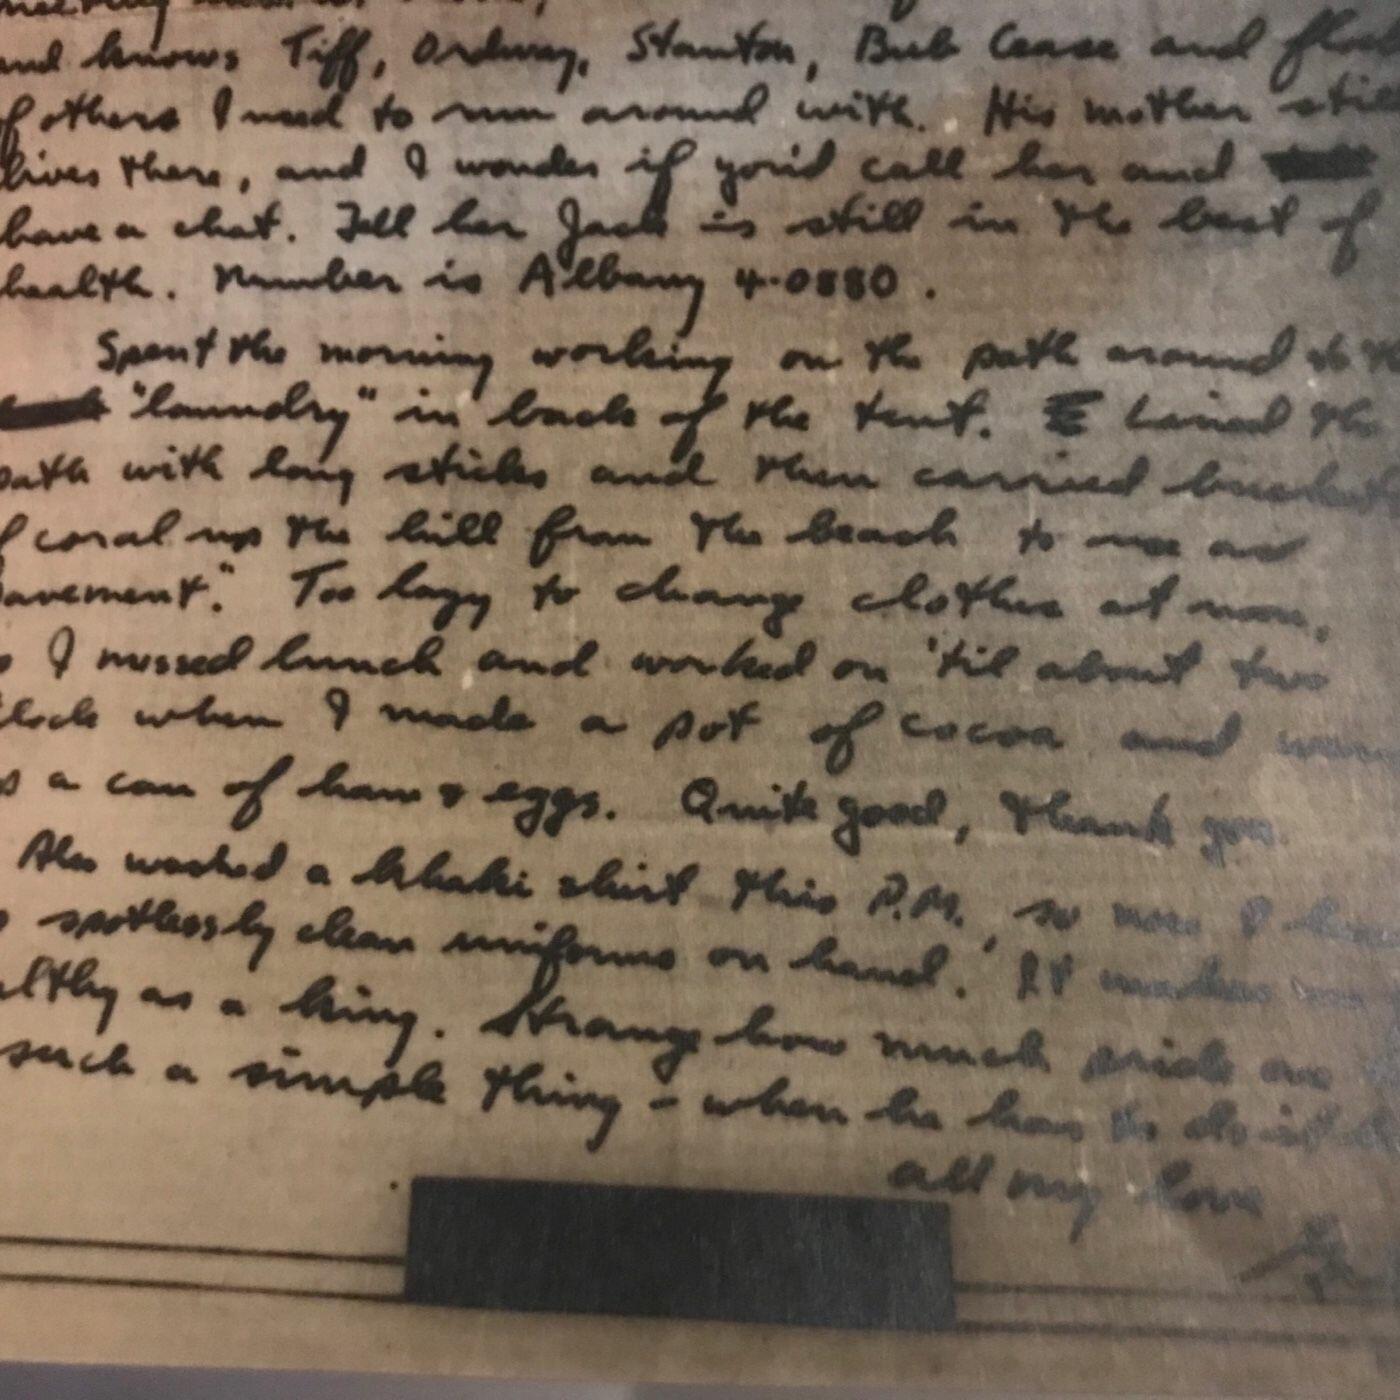 and knows Tiff, Ordway, Stanton, Bub Cease and
of others I used to run around with. His mother still
lives there, and I wonder if you'd call her and
have a chat. Tell her Jack is still in the best of
health. Number is Albany 4-0880.
Spent the morning working on the path around to the
"laundry" in back of the tent. Lined the
path with long sticks and then carried buckets
of coral up the hill from the beach to use as
pavement." Too lazy to change clothes at noon,
I missed lunch and worked on 'til about two
clock when I made a pot of cocoa and
a can of ham & eggs. Quite good, thank you.
Also washed a khaki shirt this P.M., so now I have
spotlessly clean uniforms on hand. It makes me
althy as a king. Strange how much pride one
such a simple thing - when he has to do it
all my love